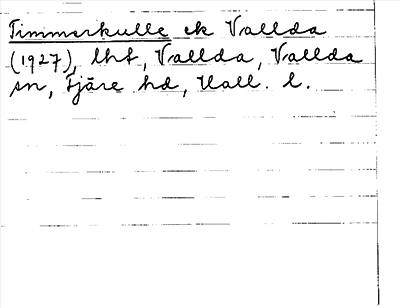 Timmerkulle ek Vallda
(1927), lht, Vallda, Vallda
sn, Fjäre hd, Hall. l.